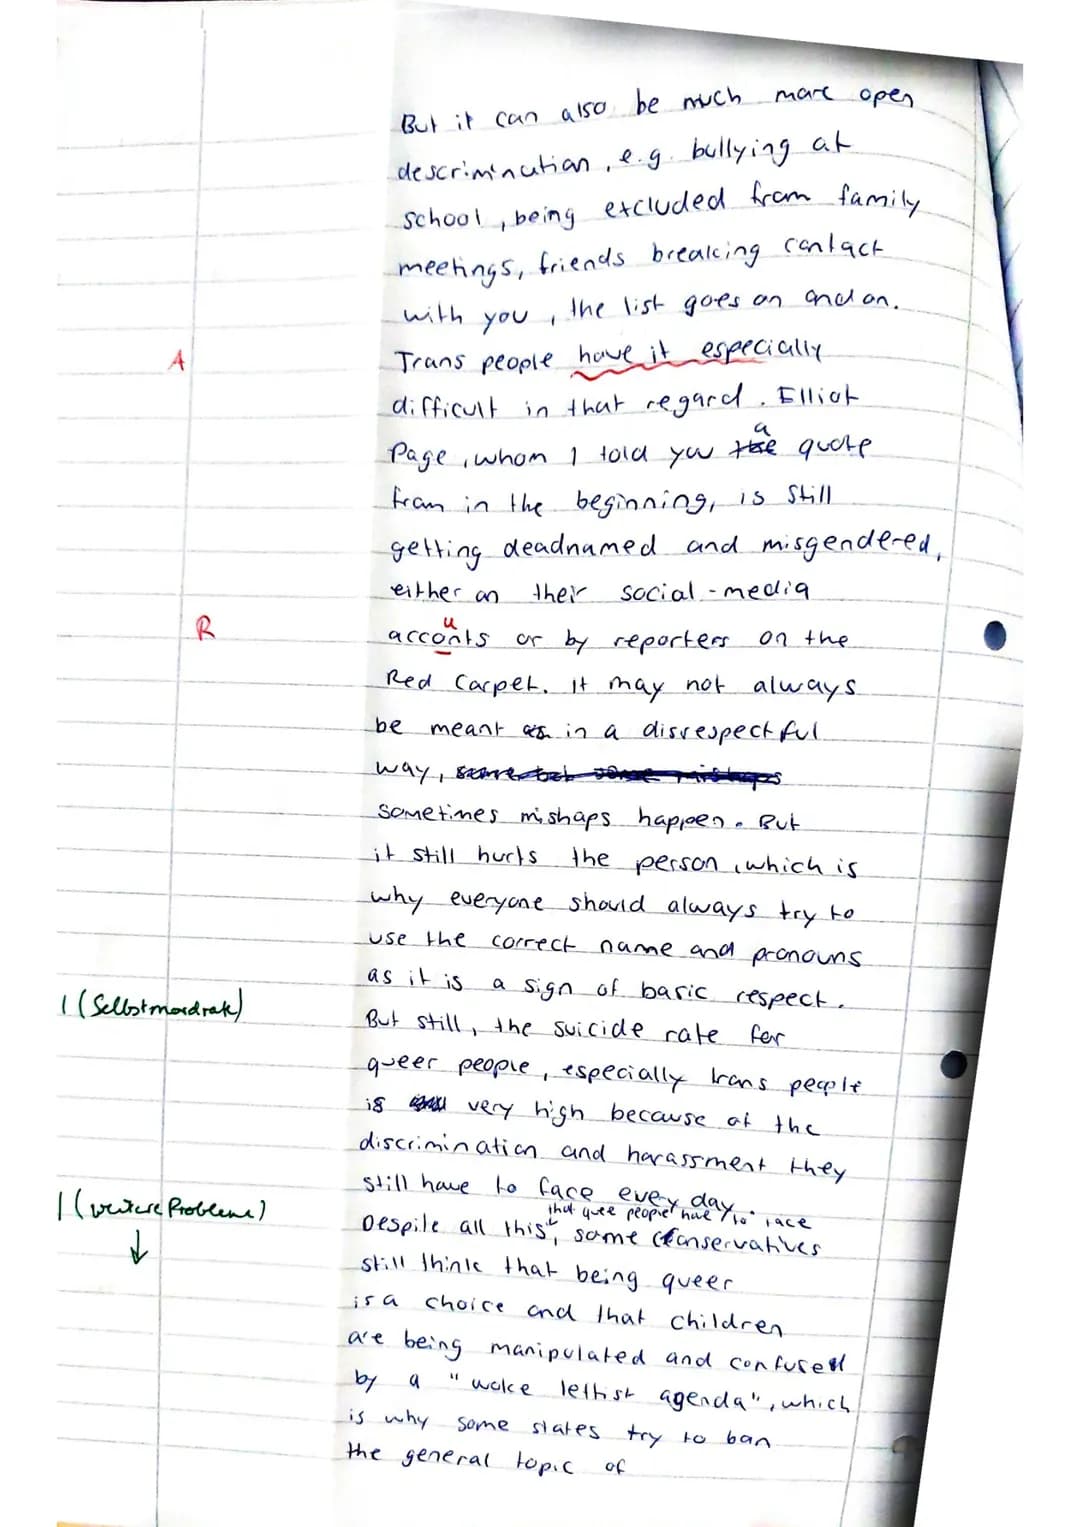 But it can also be much more open
descrimination, e.g. bullying at
school, being excluded from family
meetings, friends breaking contact
with you, the list goes on and on.
A Trans people have it especially
difficult in that regard. Elliot
a
Page, whom I told you the quote
from in the beginning, is still
getting deadnamed and misgendered,
either on their social-media
u
R acconts or by reporters on the
Red Carpet. It may not always
be meant as in a disrespectful
way,
sometimes mishaps happen. But
it still hurts the person, which is
why everyone should always try to
use the correct name and pronouns
as it is a sign of basic respect.
1 (Selbstmordrate)
But still, the suicide rate for
queer people, especially trans people
is very high because of the
discrimination and harassment they
still have to face every day.
1 (weitere Probleme)
↓
that quee people have to face
Despite all this, some conservatives
still think that being queer
is a choice and that children
are being manipulated and confused
by a "woke lefhist agenda", which
is why some states try to ban
the general topic of